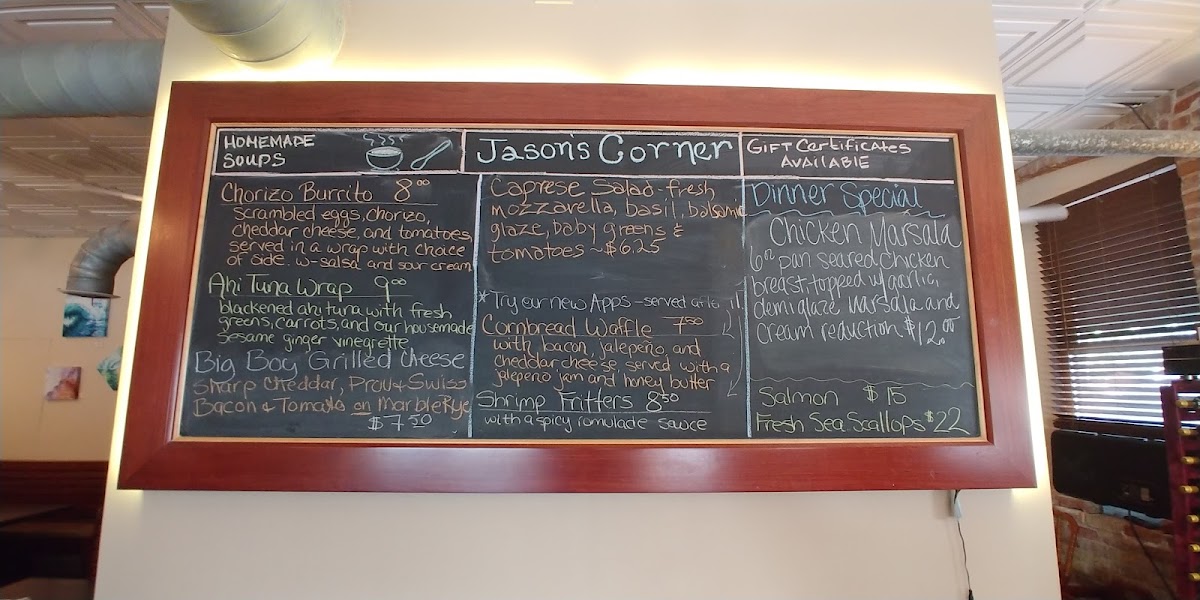 HOMEMADE
SOUPS
Chorizo Burrito 8.00
scrambled eggs, chorizo,
cheddar cheese, and tomatoes,
served in a wrap with choice
of side. w-salsa and sour cream
Ahi Tuna Wrap 9.00
blackened ahi tuna with fresh
greens, carrots, and our housemade
sesame ginger vinegrette
Big Boy Grilled Cheese
Sharp Cheddar, Prov & Swiss
Bacon & Tomato on Marble Rye
$7.50
Jason's Corner
Caprese Salad-fresh
mozzarella, basil, balsamic
glaze, baby greens &
tomatoes ~ $6.25
*Try our new Apps - served at 10
Cornbread Waffle 7.50
with bacon, jalepeño, and
cheddar cheese, served with a
jalepeño jam and honey butter
Shrimp Fritters 8.50
with a spicy romulade sauce
GIFT Certificates
AVAILABLE
Dinner Special
Chicken Marsala
6oz pan seared chicken
breast, topped w/ garlic,
demi glaze Marsala and
cream reduction $12.00
Salmon $15
Fresh Sea Scallops $22